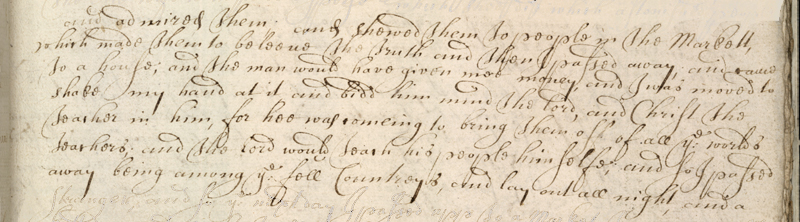 and admired them. and shewed them to people in the Markett,
which made them to beleeue the truth and then I passed away, and came
to a house; and the man would have given mee money, and I was moved to
shake my hand at it and bidd him mind the lord, and Christ the
teacher in him, for hee was comeing to bring them off of all ye: worlds
teachers; and the lord would teach his people himselfe; and so I passed
away being among ye: fell Countreys, and lay out all night, and a